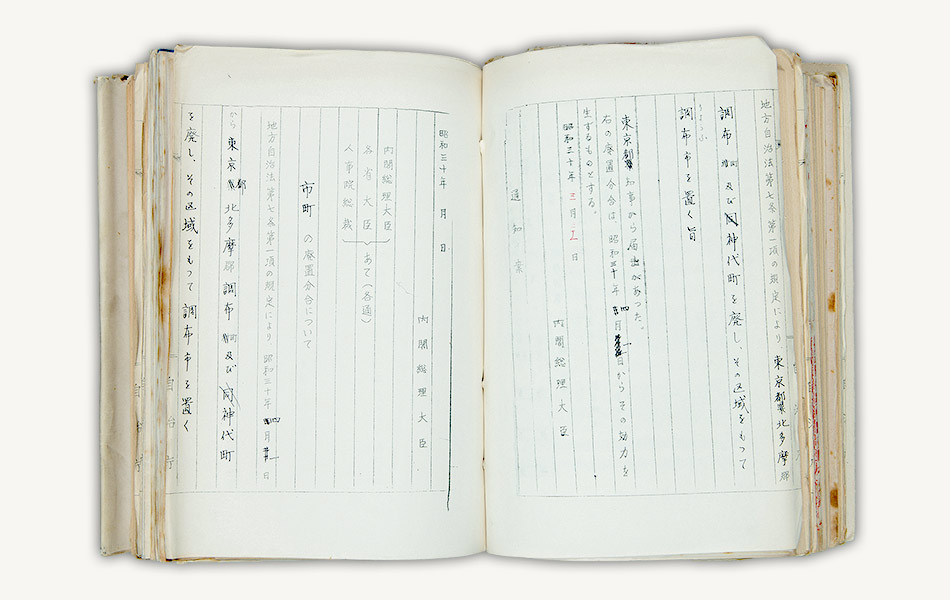 地方自治法第七条第一項の規定により 東京都北多摩郡
調布町及び神代町を廃し、その区域をもつて
ちょうふ
調布市を置く旨
東京都知事から届出があつた。
右の廃置分合は 昭和三十年四月一日からその効力を
生ずるものとする。
昭和三十年三月 日
内閣総理大臣
通知案
昭和三十年 月 日
内閣総理大臣
内閣総理大臣
各省大臣 あて(各通)
人事院総裁
市町の廃置分合について
地方自治法第七条第一項の規定により 昭和三十年四月一日
から東京都北多摩郡調布町及び神代町
を廃し、その区域をもつて調布市を置く
自治庁